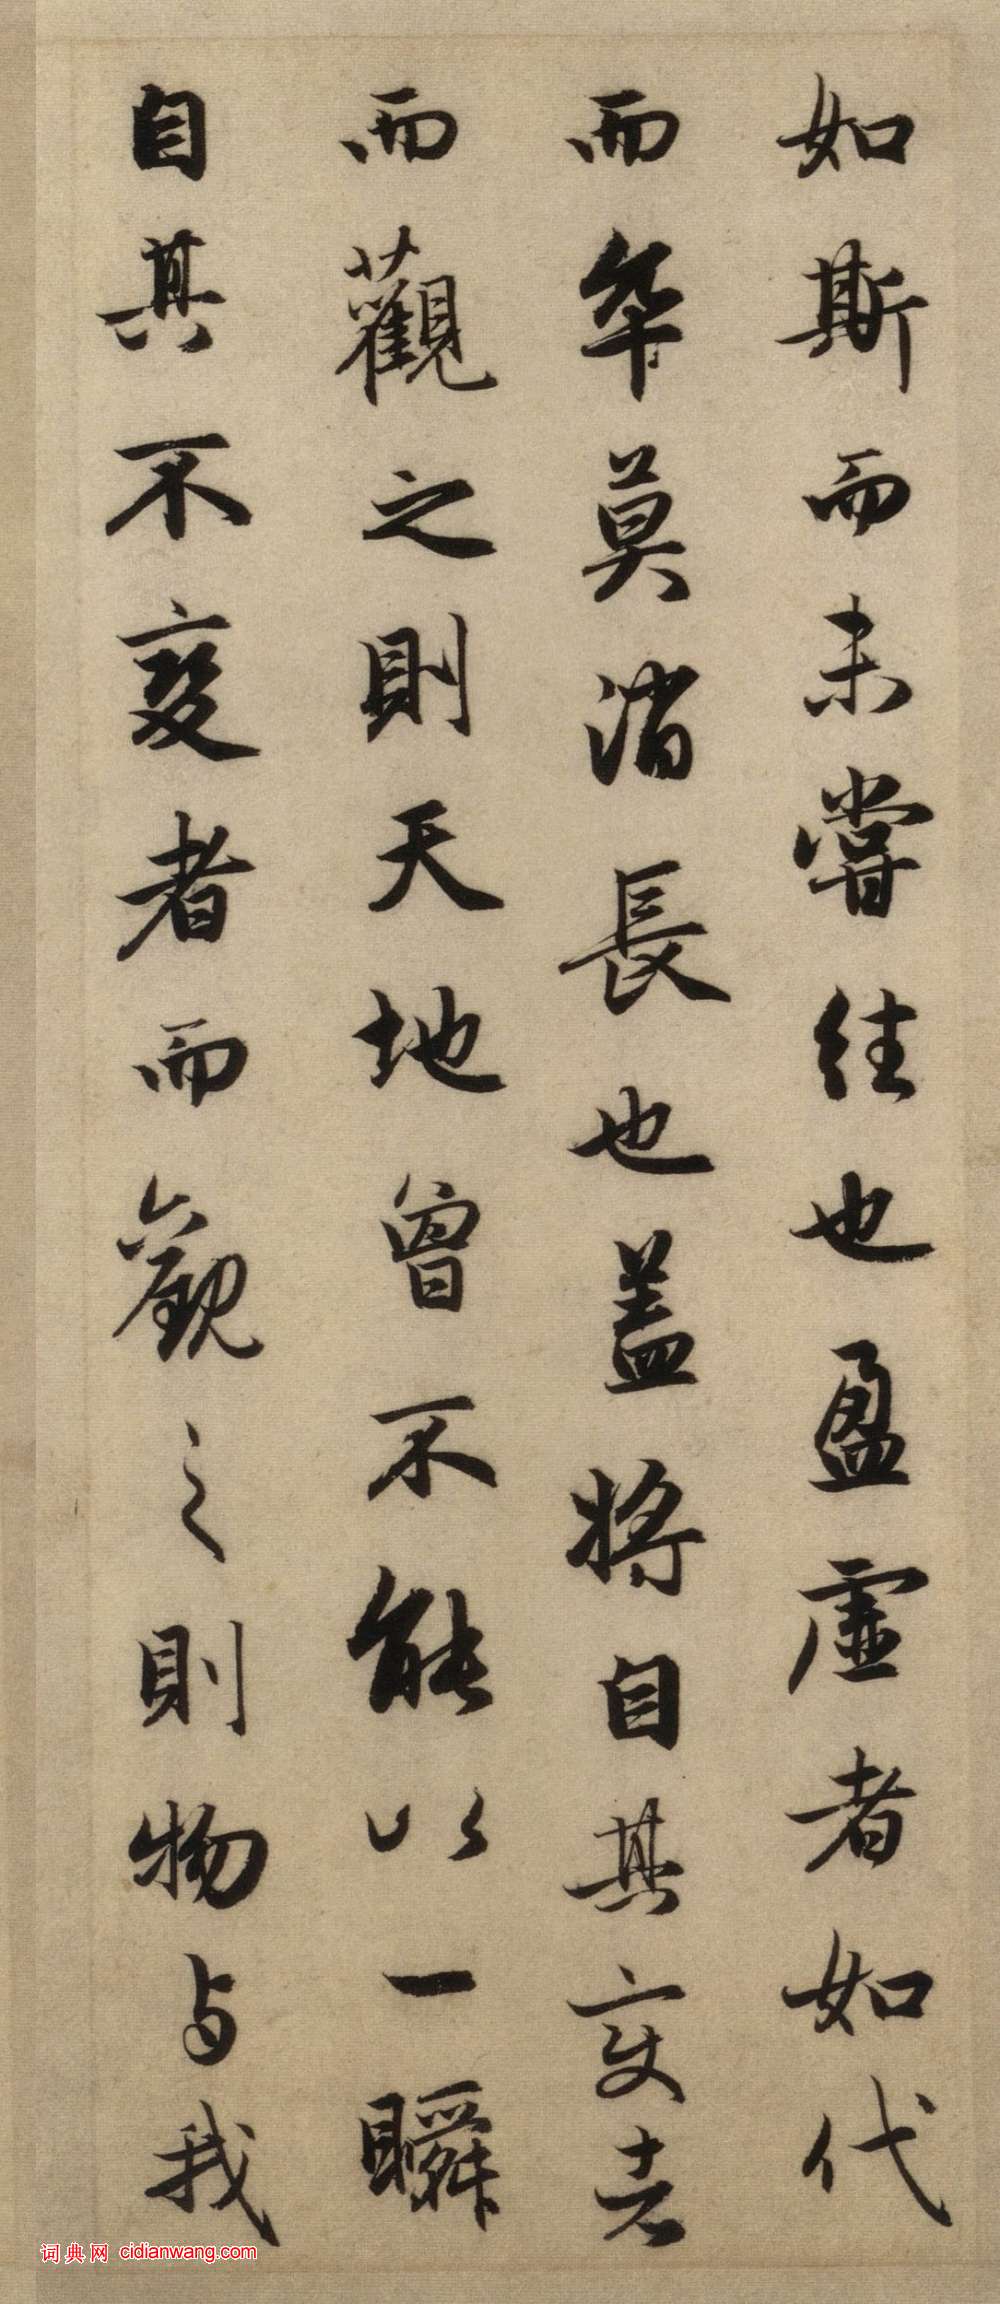 如斯而未嘗往也盈虛者如代
而卒莫消長也蓋將自其變者
而觀之則天地曾不能以一瞬
自其不變者而觀之則物与我
词典网 cidianwang.com